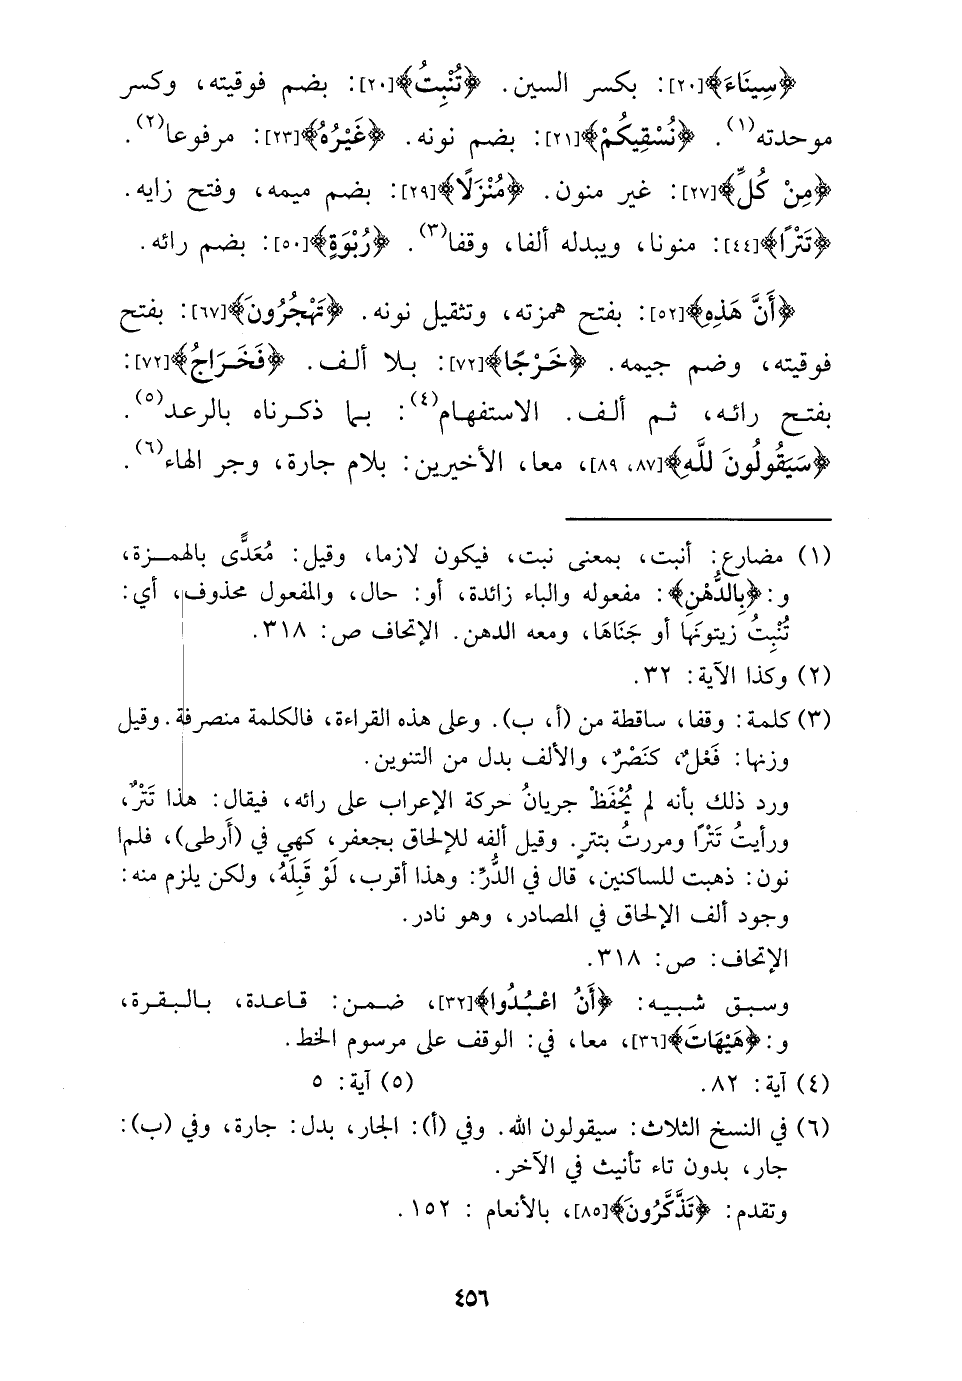 ﴿سِينَاءَ﴾[٢٠]: بكسر السين. ﴿تُنْبِتُ﴾[٢٠]: بضم فوقيته، وكسر
موحدته(١). ﴿نُسْقِيكُمْ﴾[٢١]: بضم نونه. ﴿غَيْرُهُ﴾[٢٣]: مرفوعا(٢).
﴿مِنْ كُلِّ﴾[٢٧]: غير منون. ﴿مُنْزَلًا﴾[٢٩]: بضم ميمه، وفتح زايه.
﴿تَتْرًا﴾[٤٤]: منونا، ويبدله ألفا، وقفا(٣). ﴿رُبْوَةٍ﴾[٥٠]: بضم رائه.
﴿أَنَّ هَذِهِ﴾[٥٢]: بفتح همزته، وتثقيل نونه. ﴿تَهْجُرُونَ﴾[٦٧]: بفتح
فوقيته، وضم جيمه. ﴿خَرْجًا﴾[٧٢]: بلا ألف. ﴿فَخَرَاجُ﴾[٧٢]:
بفتح رائه، ثم ألف. الاستفهام(٤): بما ذكرناه بالرعد(٥).
﴿سَيَقُولُونَ لِلَّهِ﴾[٨٧، ٨٩]، معا، الأخيرين: بلام جارة، وجر الهاء(٦).
(١) مضارع: أنبت، بمعنى نبت، فيكون لازما، وقيل: مُعَدًّى بالهمزة،
و: ﴿بِالدُّهْنِ﴾: مفعوله والباء زائدة، أو: حال، والمفعول محذوف، أي:
تُنْبِتُ زيتونَها أو جَنَاهَا، ومعه الدهن. الإتحاف ص: ٣١٨.
(٢) وكذا الآية: ٣٢.
(٣) كلمة: وقفا، ساقطة من (أ، ب). وعلى هذه القراءة، فالكلمة منصرفة. وقيل
وزنها: فَعْلٌ، كنَصْرٌ، والألف بدل من التنوين.
ورد ذلك بأنه لم يُحْفَظْ جريانُ حركة الإعراب على رائه، فيقال: هذا تَتْرٌ،
ورأيتُ تَتْرًا ومررتُ بتترٍ. وقيل ألفه للإلحاق بجعفر، كهي في (أَرطى)، فلما
نون: ذهبت للساكنين، قال في الدُّرِّ: وهذا أقرب، لَوْ قَبِلَهُ، ولكن يلزم منه:
وجود ألف الإلحاق في المصادر، وهو نادر.
الإتحاف: ص: ٣١٨.
وسبق شبيه: ﴿أَنُ اعْبُدُوا﴾[٣٢]، ضمن: قاعدة، بالبقرة،
و: ﴿هَيْهَاتَ﴾[٣٦]، معا، في: الوقف على مرسوم الخط.
(٤) آية: ٨٢. (٥) آية: ٥
(٦) في النسخ الثلاث: سيقولون الله. وفي (أ): الجار، بدل: جارة، وفي (ب):
جار، بدون تاء تأنيث في الآخر.
وتقدم: ﴿تَذَّكَّرُونَ﴾[٨٥]، بالأنعام : ١٥٢.
٤٥٦